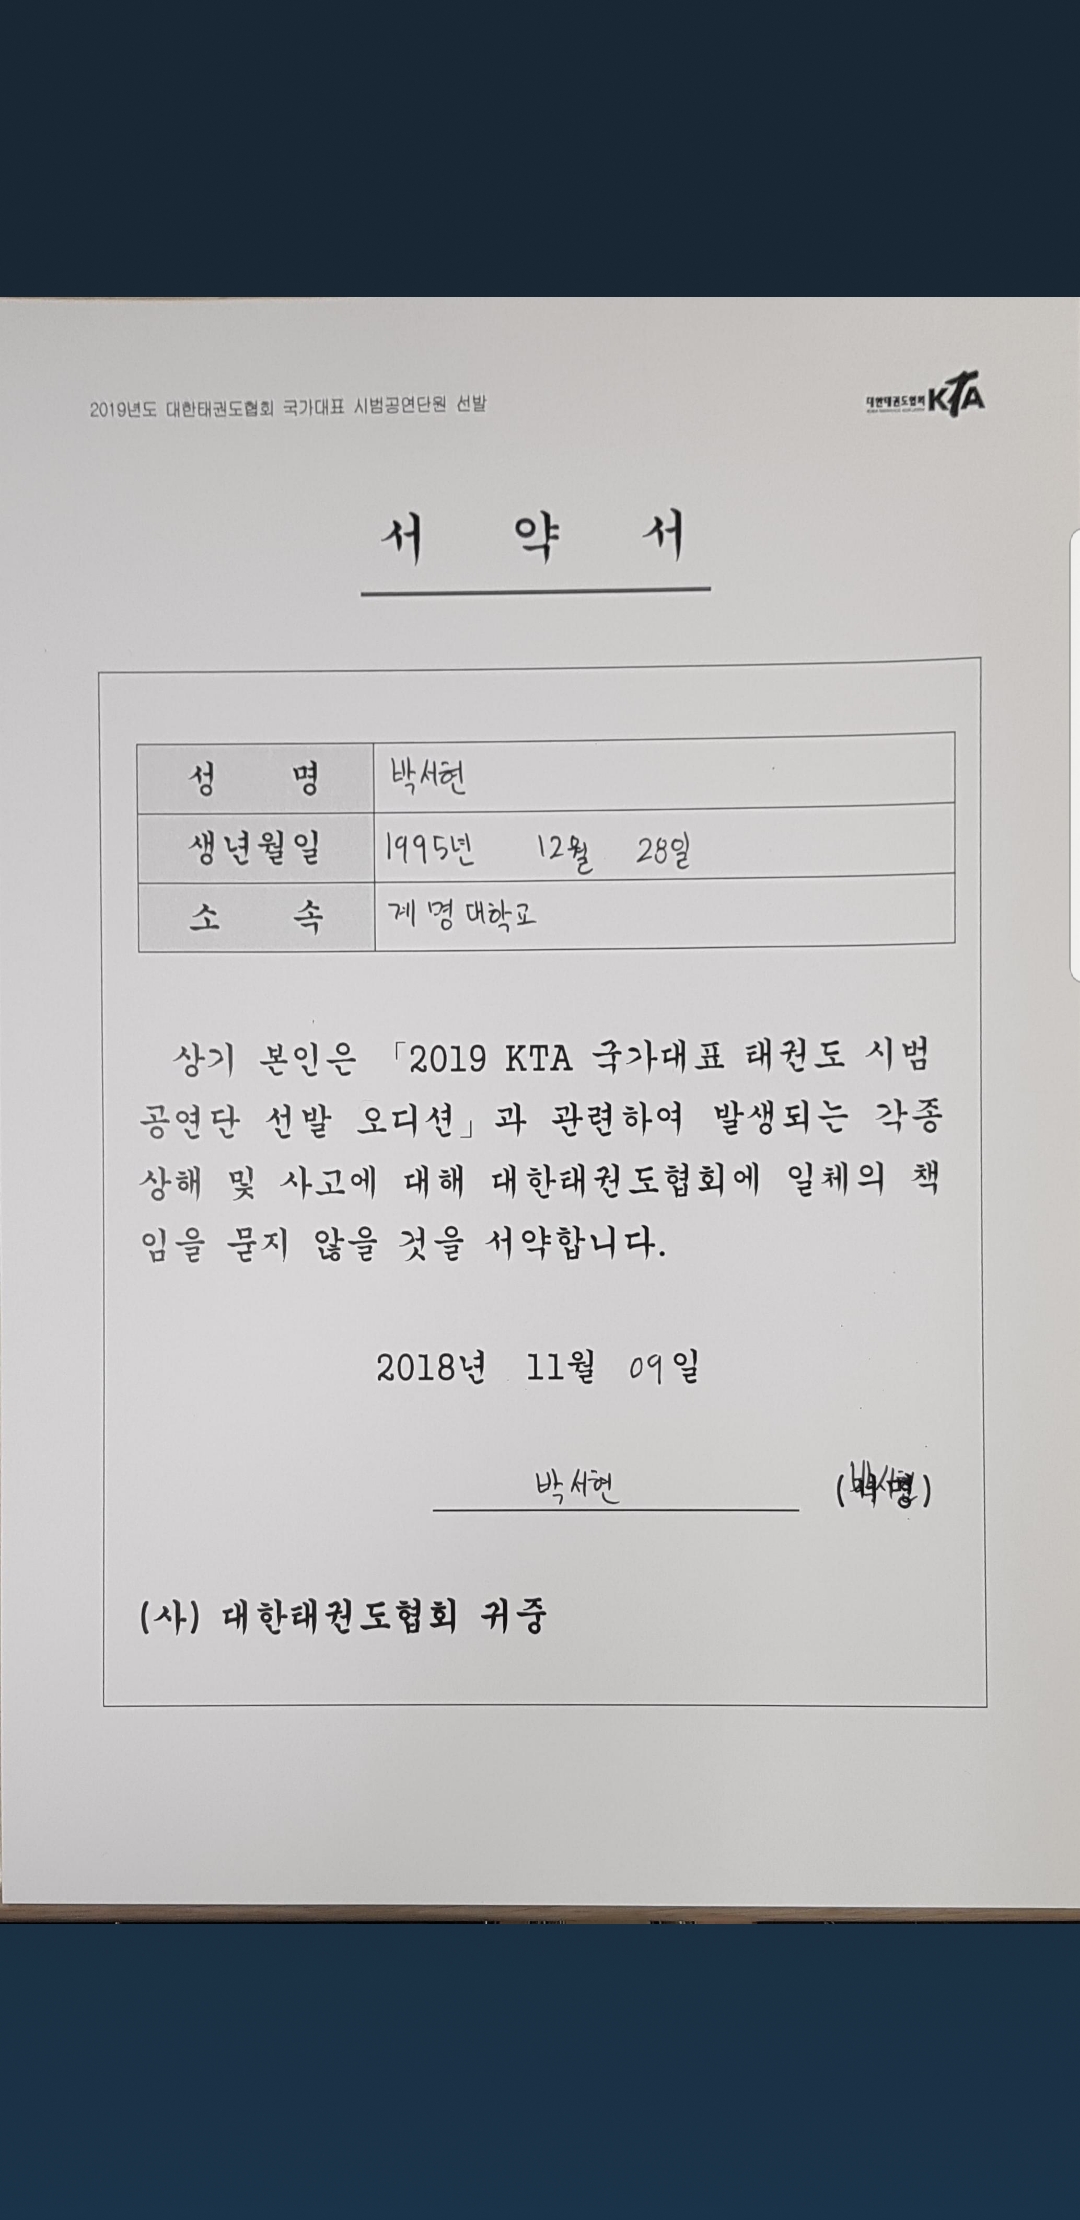 2019년도 대한태권도협회 국가대표 시범공연단원 선발
대한태권도협회 KTA
서 약 서
성 명 박서현
생년월일 1995년 12월 28일
소 속 계명대학교
상기 본인은 「2019 KTA 국가대표 태권도 시범
공연단 선발 오디션」과 관련하여 발생되는 각종
상해 및 사고에 대해 대한태권도협회에 일체의 책
임을 묻지 않을 것을 서약합니다.
2018년 11월 09일
박서현 (서명)
(사) 대한태권도협회 귀중